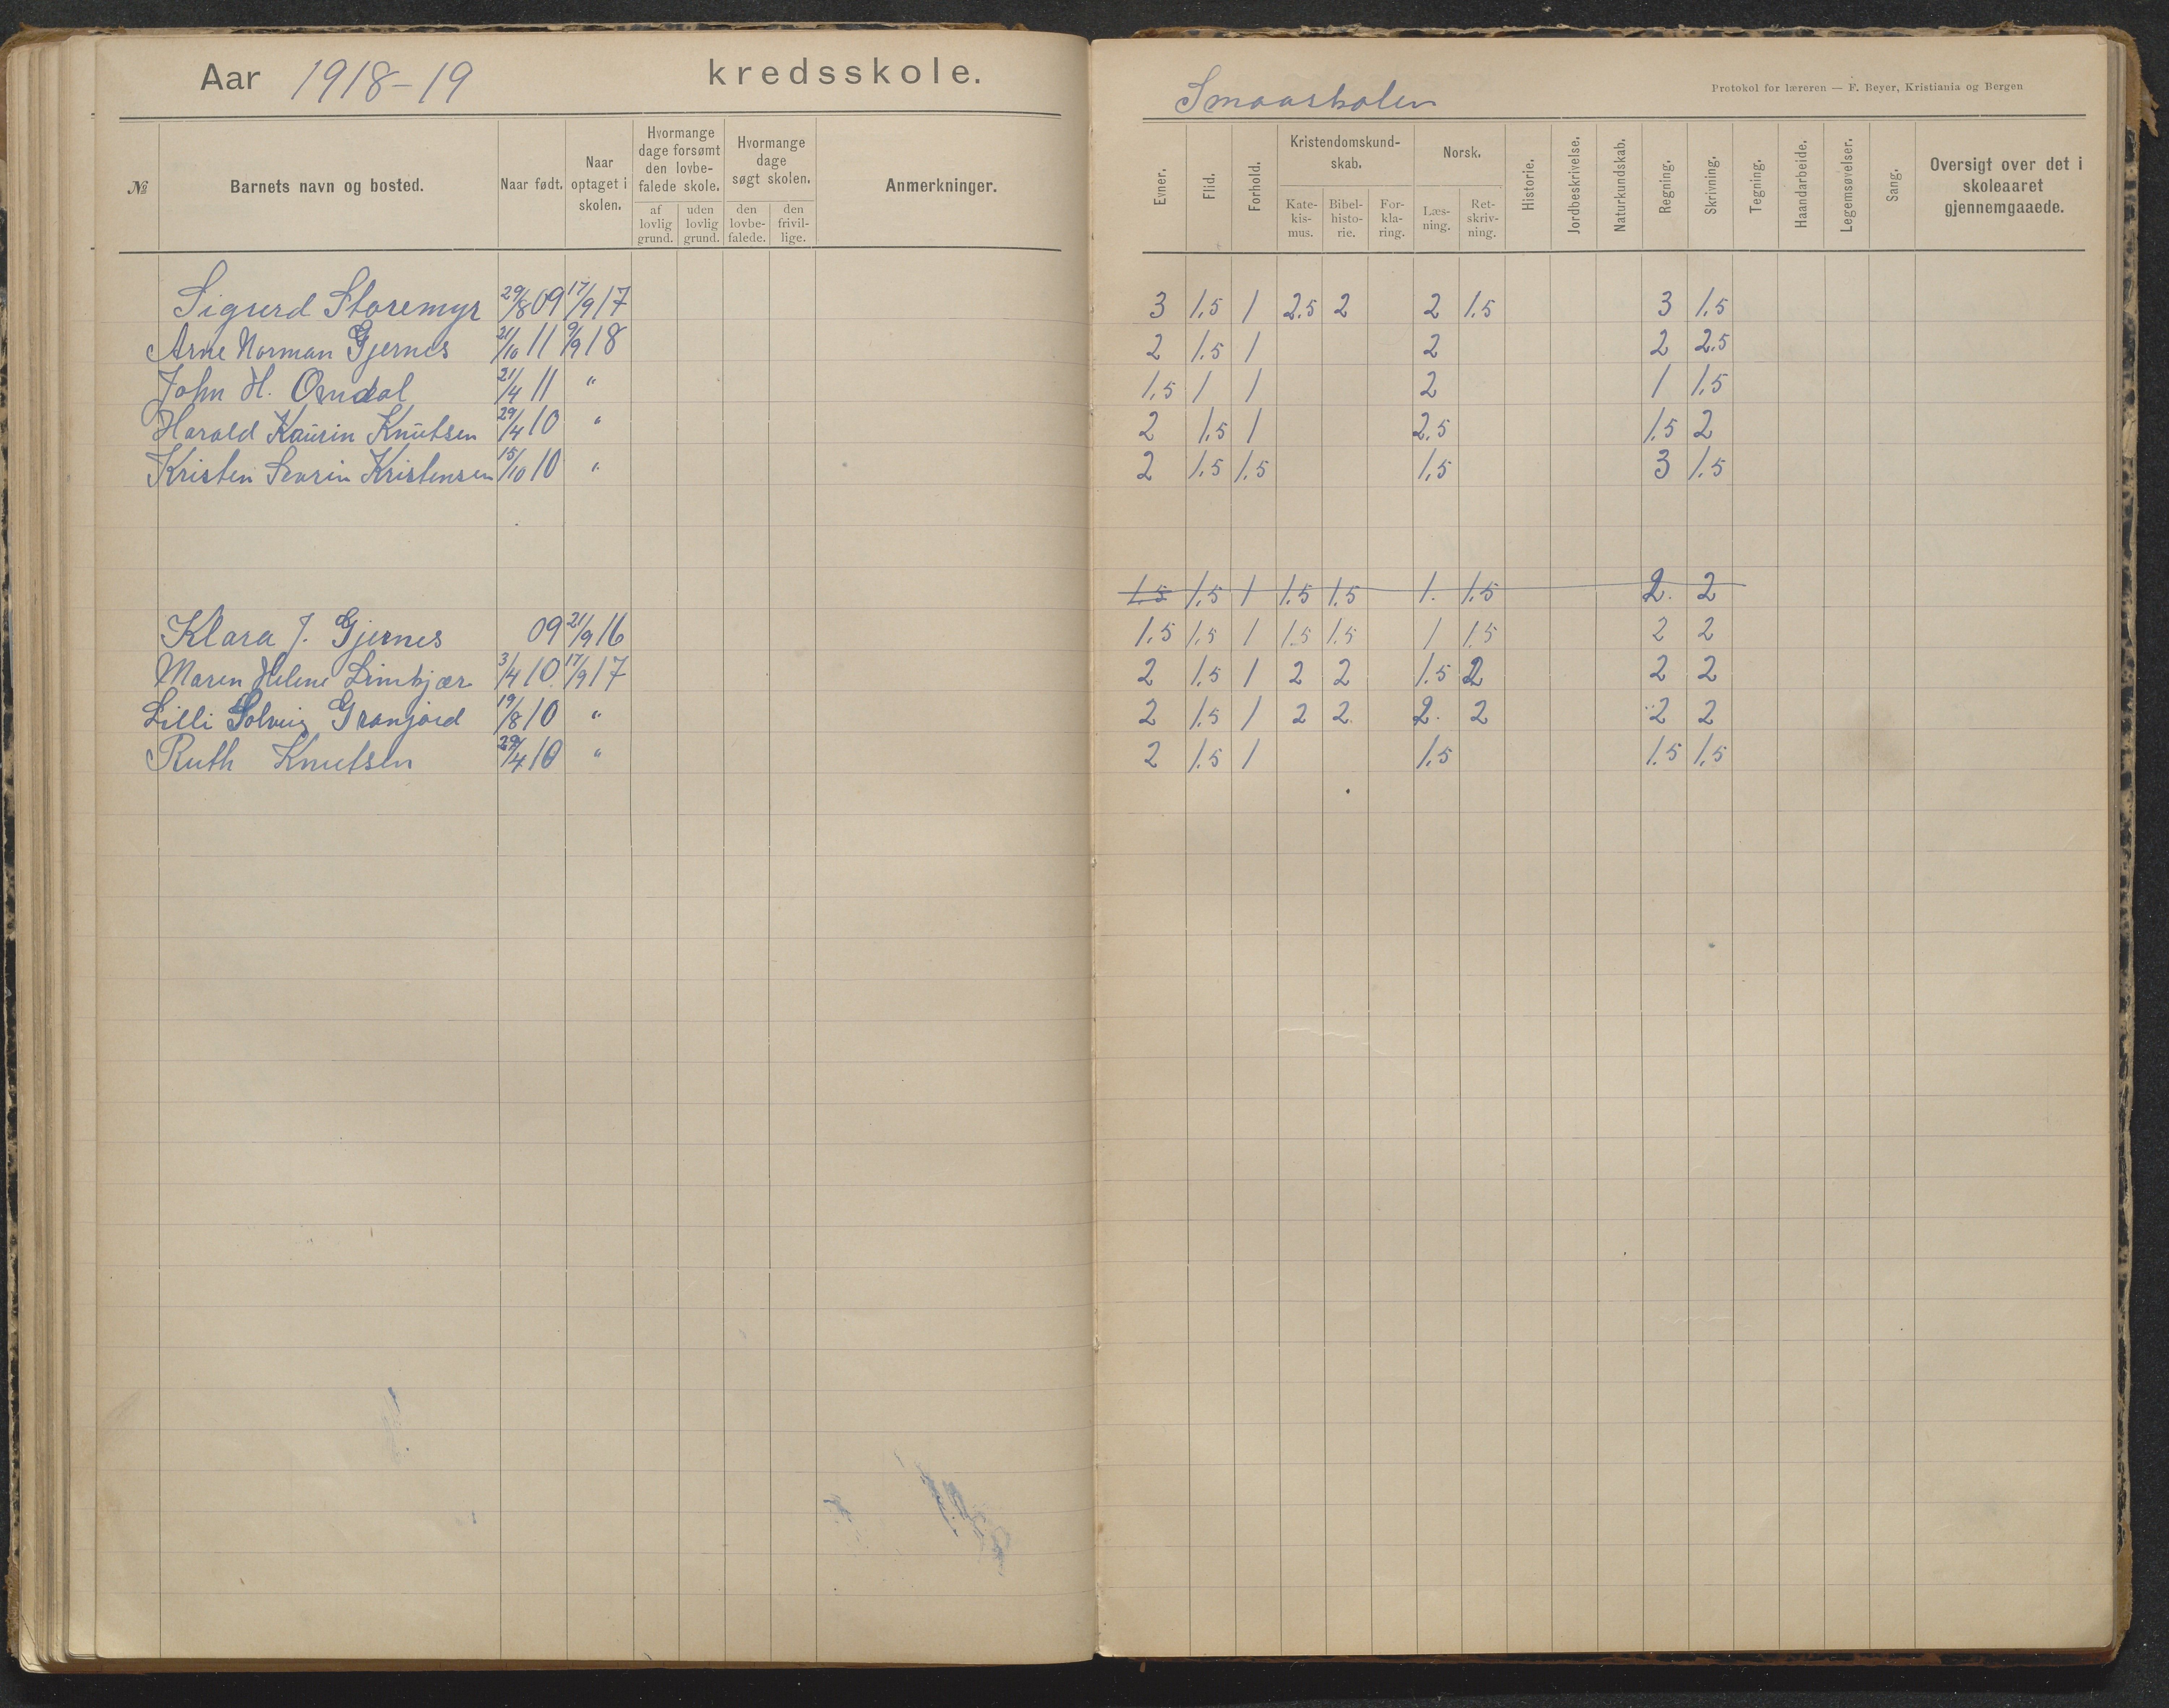 Aar 1918-19 kredsskole.
№
Barnets navn og bosted.
Naar født.
Naar optaget i skolen.
Hvormange dage forsømt den lovbefalede skole.
af lovlig grund.
uden lovlig grund.
Hvormange dage søgt skolen.
den lovbefalede.
den frivillige.
Anmerkninger.
Sigurd Storemyr 29/8 09 17/9 17
Arne Norman Gjernes 21/10 11 9/9 18
John H. Omdal 21/4 11 "
Harald Kaurin Knutsen 29/4 10 "
Kristen Severin Kristensen 15/10 10 "
Klara J. Gjernes 09 21/9 16
Maren Helene Limkjær 3/4 10 17/9 17
Lilli Solveig Granjord 19/8 10 "
Ruth Knutsen 29/4 10 "
Smaaskolen
Protokol for læreren — F. Beyer, Kristiania og Bergen
Evner.
Flid.
Forhold.
Kristendomskundskab.
Katekismus.
Bibelhistorie.
Forklaring.
Norsk.
Læsning.
Retskrivning.
Historie.
Jordbeskrivelse.
Naturkundskab.
Regning.
Skrivning.
Tegning.
Haandarbeide.
Legemsøvelser.
Sang.
Oversigt over det i skoleaaret gjennemgaaede.
3 1.5 1 2.5 2 2 1.5 3 1.5
2 1.5 1 2 2 2.5
1.5 1 1 2 1 1.5
2 1.5 1 2.5 1.5 2
2 1.5 1.5 1.5 3 1.5
1.5 1.5 1 1.5 1.5 1. 1.5 2. 2
1.5 1.5 1 1.5 1.5 1 1.5 2 2
2 1.5 1 2 2 1.5 2 2 2
2 1.5 1 2 2. 2. 2 2 2
2 1.5 1 1.5 1.5 1.5